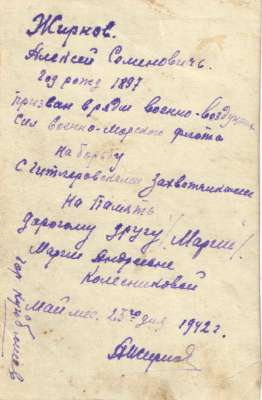 Жирнов.
Алексей Семеновичь.
год рожд 1897
призван в ряды военно-воздушных
сил военно-морского флота
на борьбу
с гитлеровскими захватчиками
На память
дорогому другу /Марии/.
Марии Андреевне
Колесниковой
Май мес. 25го дня 1942 г.
АЖирнов
гор Куйбышев